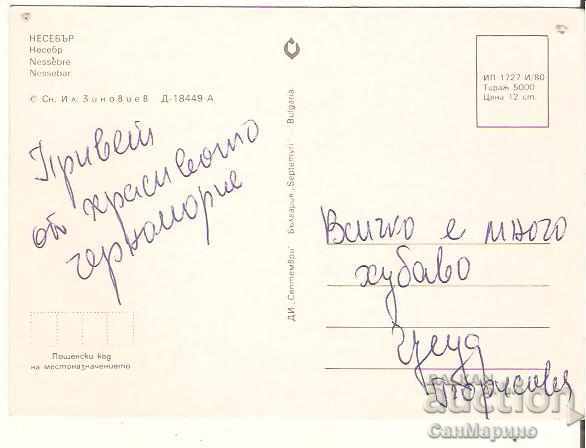 НЕСЕБЪР
Несебр
Nessèbre
Nessebar
© Сн. Ил. Зиновиев Д-18449-А
Привет
от красивото
черноморие
Пощенски код
на местоназначението
ДИ „Септември" България „Septemvri" Bulgaria
ИП 1727 И/80
Тираж 5000
Цена 12 ст.
Всичко е много
хубаво
auction
СанМарино